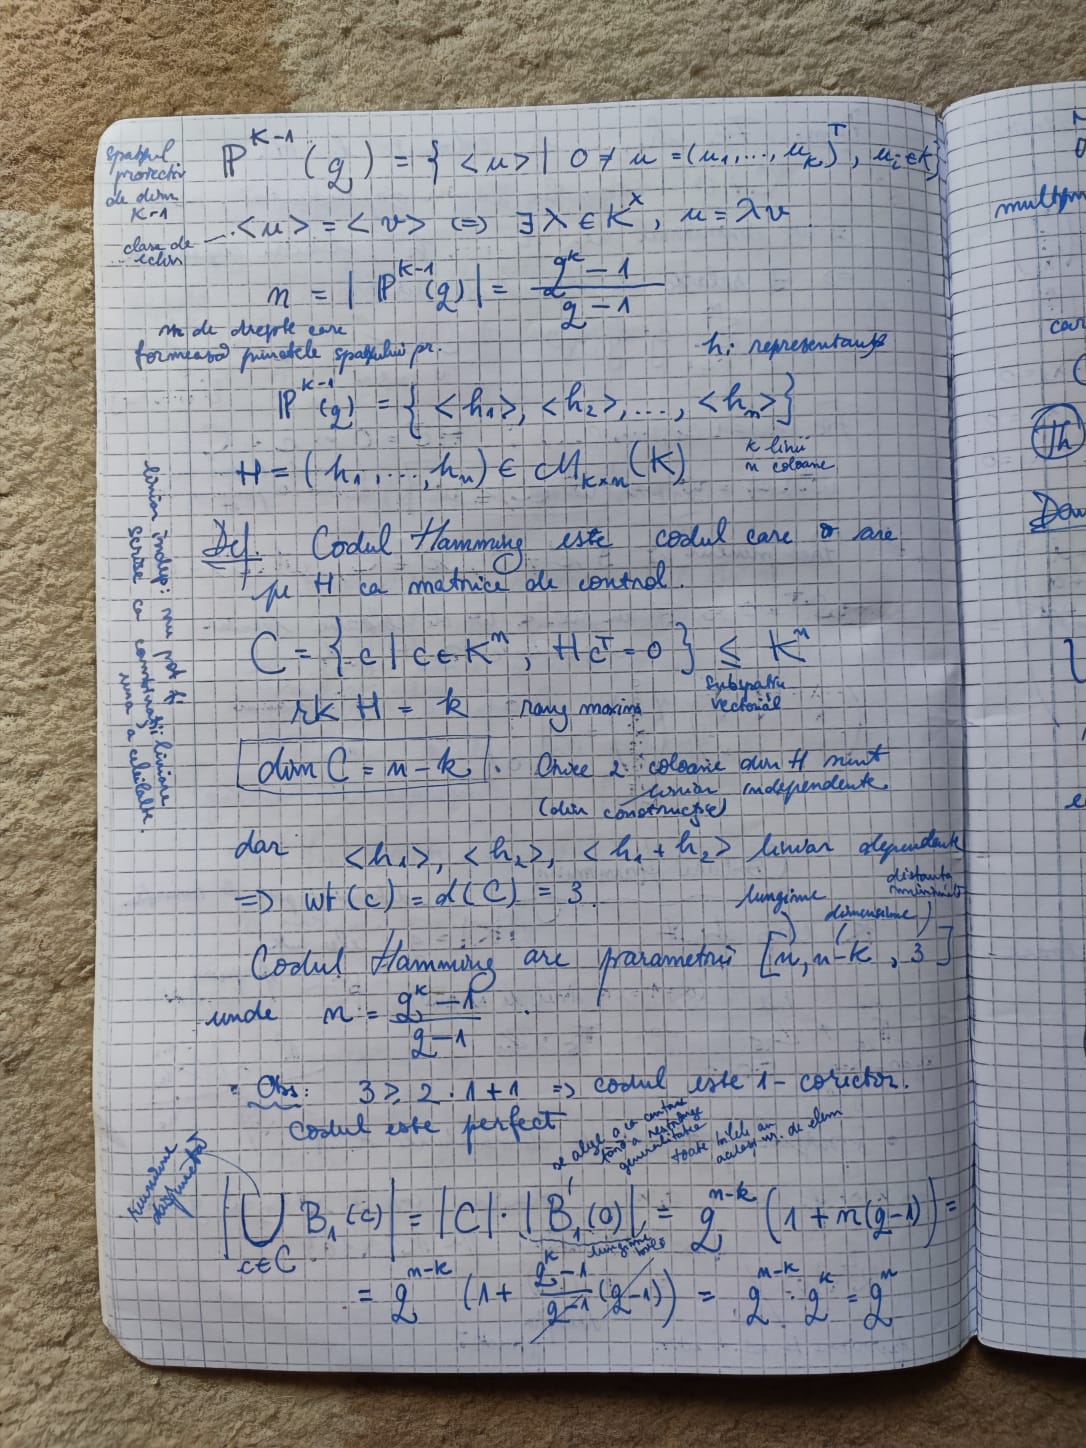 spațiul
proiectiv
de dim
K-1
P^{K-1}(q) = { <u> | 0 ≠ u = (u_1, ..., u_k)^T, u_i ∈ K }
<u> = <v> (=) ∃ λ ∈ K^×, u = λv
clase de
echiv
n = | P^{K-1}(q) | = (q^k - 1)/(q - 1)
nr de drepte care
formează punctele spațiului pr.
h_i reprezentanți
P^{K-1}(q) = { <h_1>, <h_2>, ..., <h_n> }
H = (h_1, ..., h_n) ∈ M_{k×n}(K)
k linii
n coloane
liniar indep: nu pot fi
scrise ca combinații liniare
una a celeilalte.
Def. Codul Hamming este codul care are
pe H ca matrice de control.
C = { c | c ∈ K^n, Hc^T = 0 } ≤ K^n
subspațiu
vectorial
rk H = k rang maxim
dim C = n - k . Orice 2 coloane din H sunt
liniar independente
(din construcție)
dar <h_1>, <h_2>, <h_1 + h_2> liniar dependente
=> wt(c) = d(C) = 3
lungime
dimensiune
distanța
minimă
Codul Hamming are parametrii [n, n-k, 3]
unde n = (q^k - 1)/(q - 1) .
Obs: 3 ≥ 2 · 1 + 1 => codul este 1-corector.
Codul este perfect
se alege 0 ca centru
fără a restrânge
generalitatea
toate bilele au
același nr. de elem
reuniune
disjunctă
| ∪_{c∈C} B_1(c) | = |C| · | B_1(0) | = q^{n-k} (1 + n(q-1)) =
= q^{n-k} (1 + (q^k - 1)/(q - 1) (q-1)) = q^{n-k} · q^k = q^n